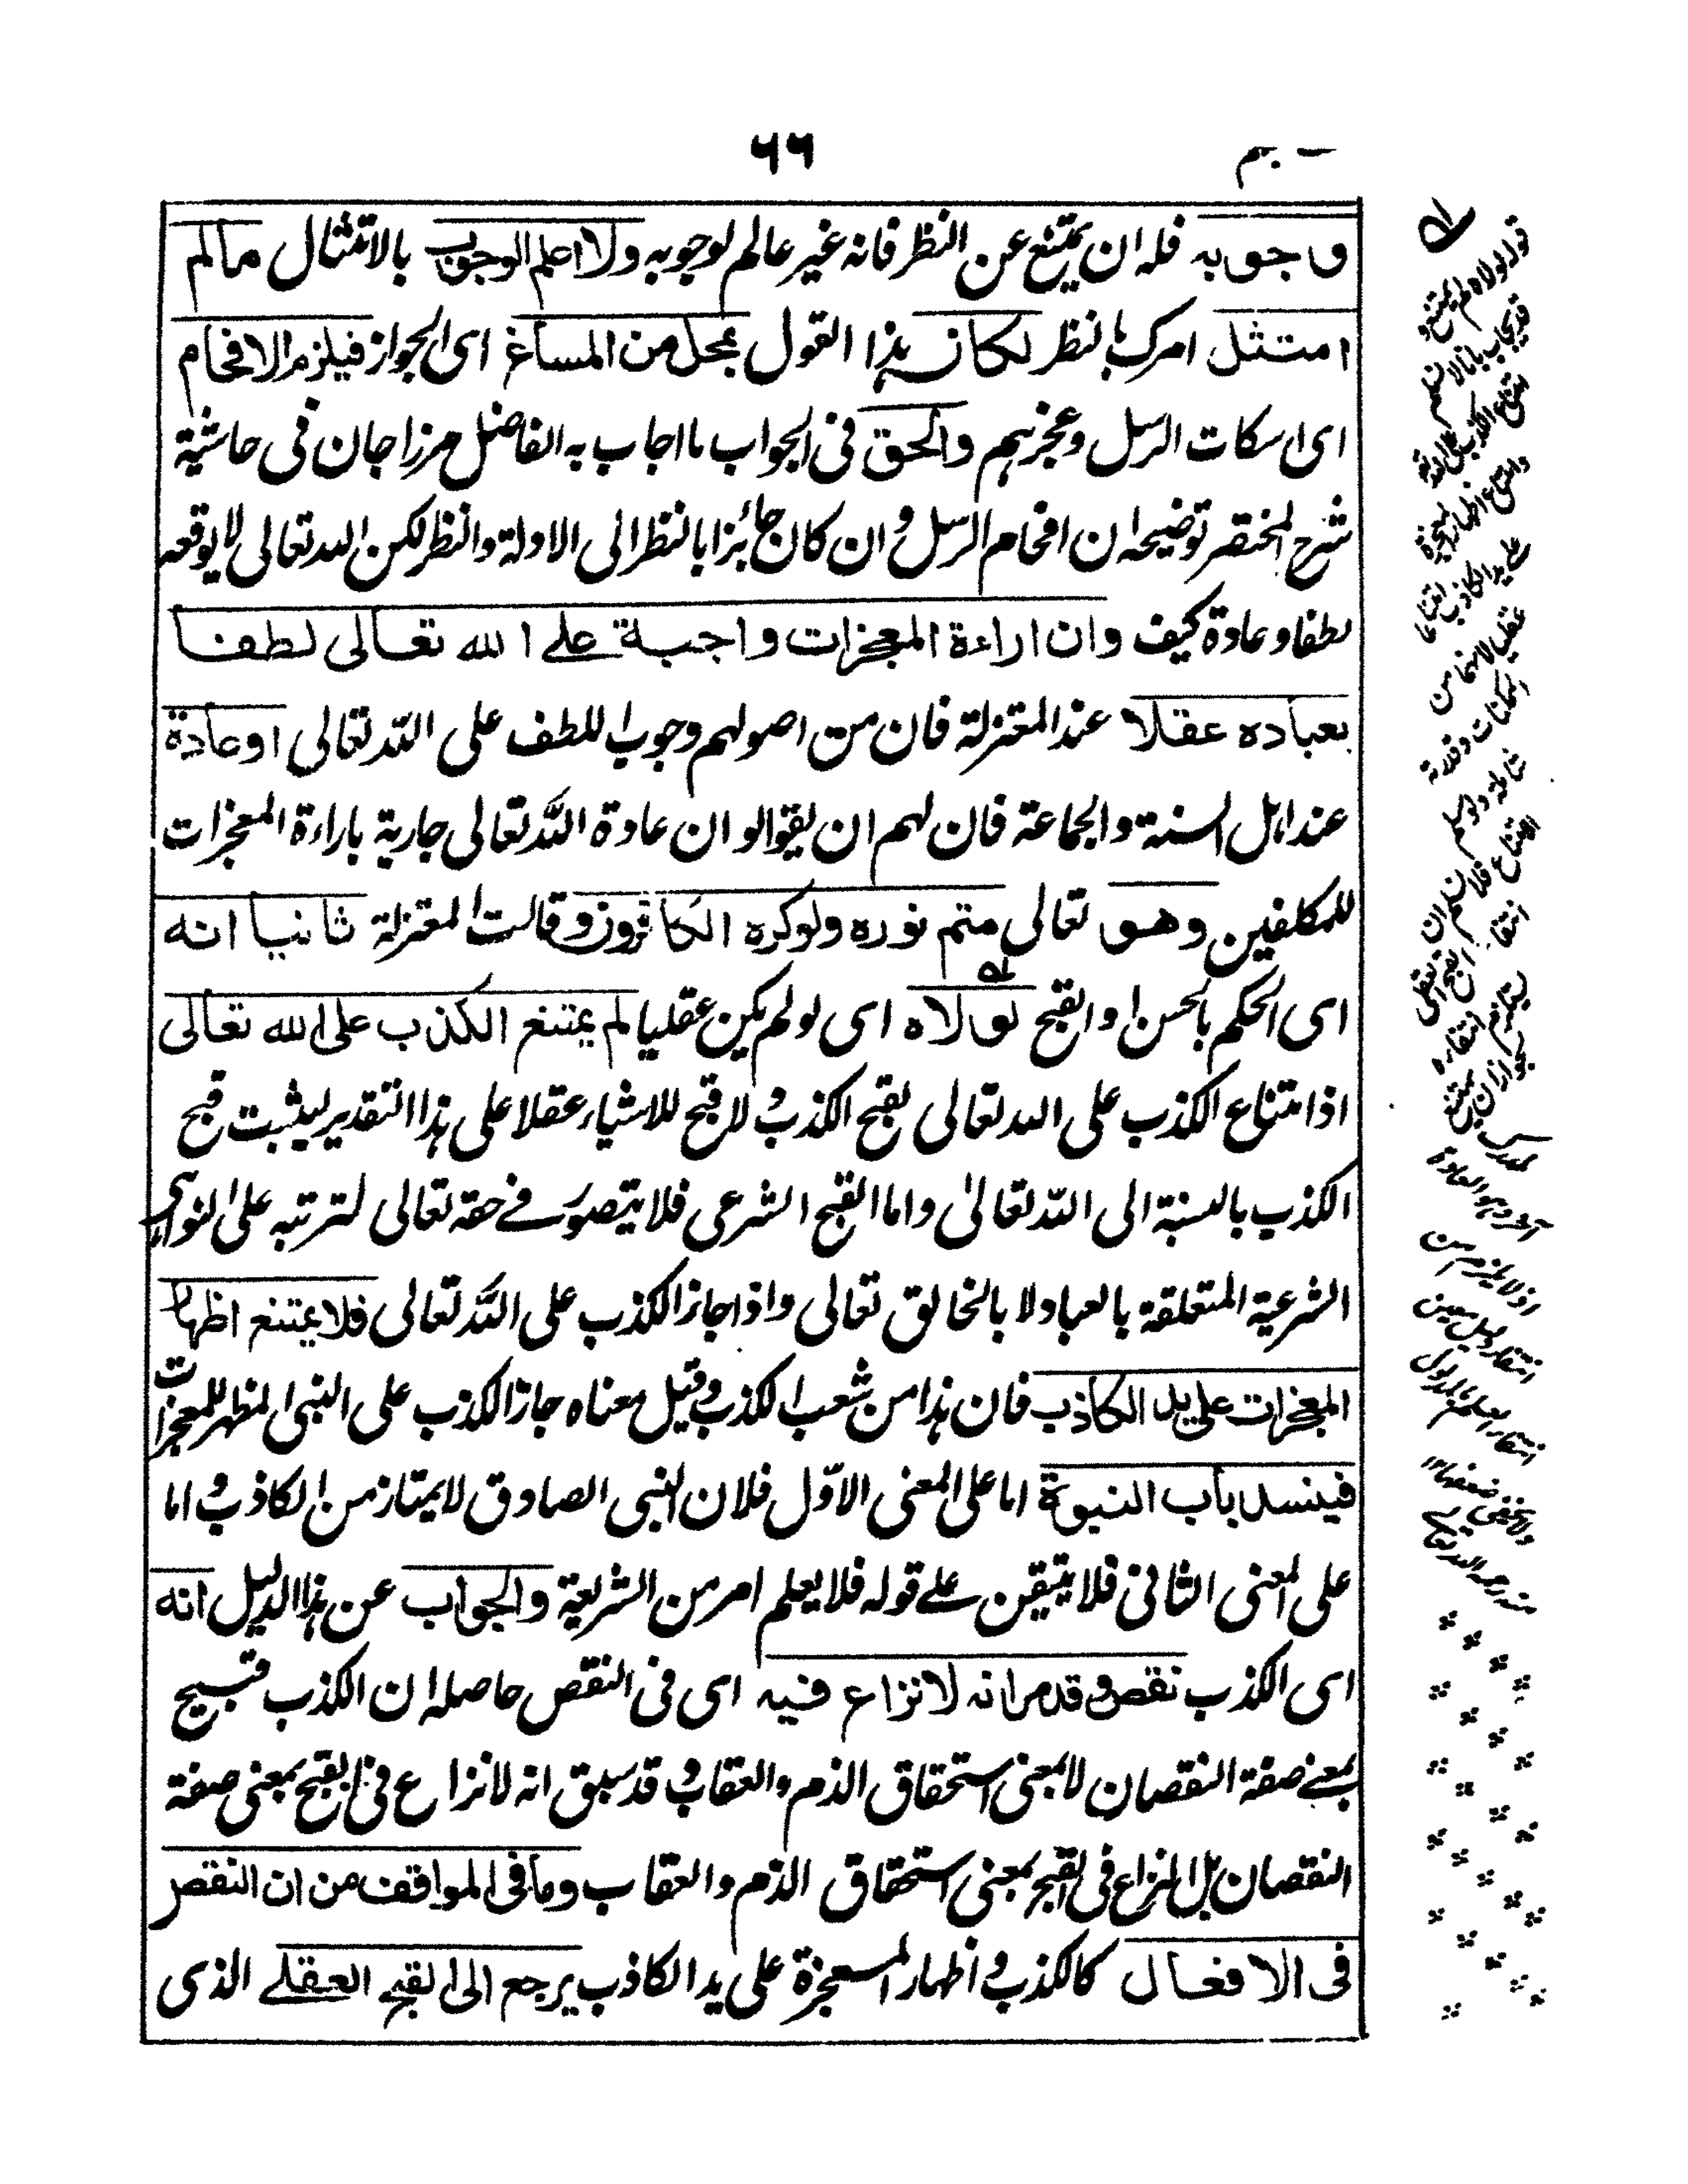 ٦٦
وجوبه فله ان يمتنع عن النظر فانه غير عالم لوجوبه ولا اعلم الوجوب بالامتثال مالم
امتثل امرك بالنظر لكان هذا القول بمحل من المساغ اى الجواز فيلزم الافحام
اى اسكات الرسل وعجزهم والحق فى الجواب ما اجاب به الفاضل مرزا جان فى حاشية
شرح المختصر توضيحه ان افحام الرسل وان كان جائزا بالنظر الى الادلة والنظر لكن الله تعالى لا يوقعه
لطفا وعادة كيف وان اراءة المعجزات واجبة على الله تعالى لطفا
بعباده عقلا عند المعتزلة فان من اصولهم وجوب اللطف على الله تعالى اوعادة
عند اهل السنة والجماعة فان لهم ان يقوالو ان عادة الله تعالى جارية باراءة المعجزات
للمكلفين وهو تعالى متم نوره ولو كره الكافرون وقالت المعتزلة ثانيا انه
اى الحكم بالحسن والقبح لولاه اى لو لم يكن عقليا لم يمتنع الكذب على الله تعالى
اذا متناع الكذب على الله تعالى لقبح الكذب ولا قبح للاشياء عقلا على هذا التقدير ليثبت قبح
الكذب بالنسبة الى الله تعالىٰ واما القبح الشرعى فلا يتصور فے حقه تعالى لترتبه على النواهى
الشرعية المتعلقة بالعباد لا بالخالق تعالى واذا جاز الكذب على الله تعالى فلا يمتنع اظهار
المعجزات على يد الكاذب فان هذا من شعب الكذب وقيل معناه جاز الكذب على النبى المظهر للمعجزات
فينسد باب النبوة اما على المعنى الاوّل فلان النبى الصادق لا يمتاز من الكاذب واما
على المعنى الثانى فلا يتيقن علے قوله فلا يعلم امر من الشريعة والجواب عن هذا الدليل انه
اى الكذب نقص وقد مر انه لا نزاع فيه اى فى النقص حاصله ان الكذب قبيح
بمعنے صفة النقصان لا بمعنى استحقاق الذم والعقاب وقد سبق انه لا نزاع فى القبح بمعنى صفة
النقصان بل النزاع فى القبح بمعنى استحقاق الذم والعقاب وما فى المواقف من ان النقص
فى الافعال كالكذب واظهار المعجزة على يد الكاذب يرجع الى القبح العقلے الذى